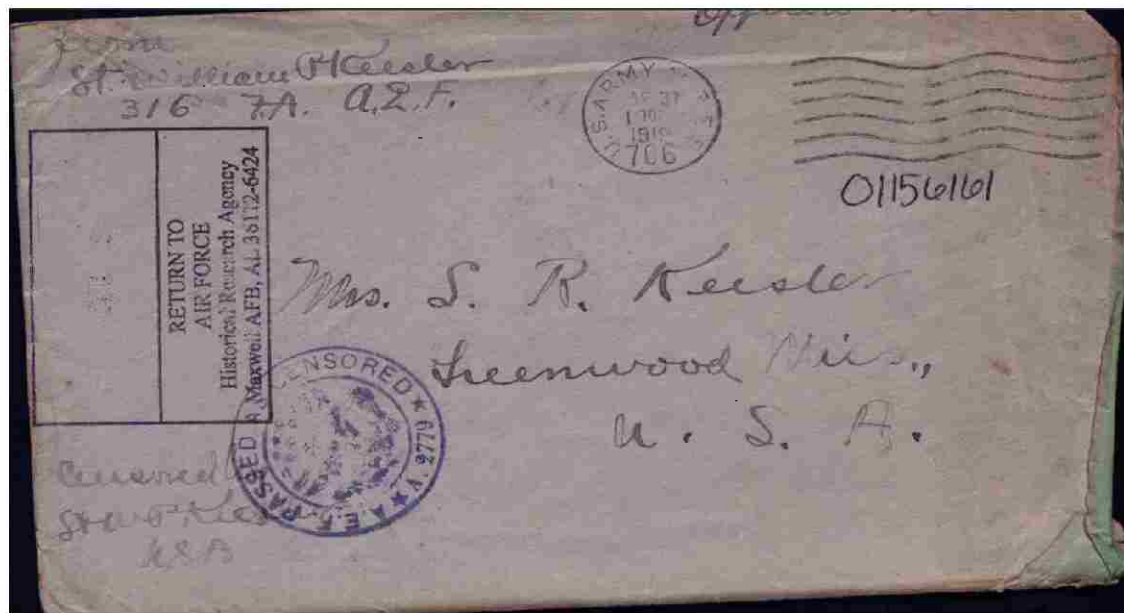 Officers M
From
Lt. William P Keesler
316 F.A. A.E.F.
U.S. ARMY
27
706
01156161
RETURN TO
AIR FORCE
Historical Research Agency
Maxwell AFB, AL 36112-6424
Mrs. S. R. Keesler
Greenwood Miss.,
U. S. A.
A.E.F. PASSED AS CENSORED
2779
Censored
Lt W P Kees
USA